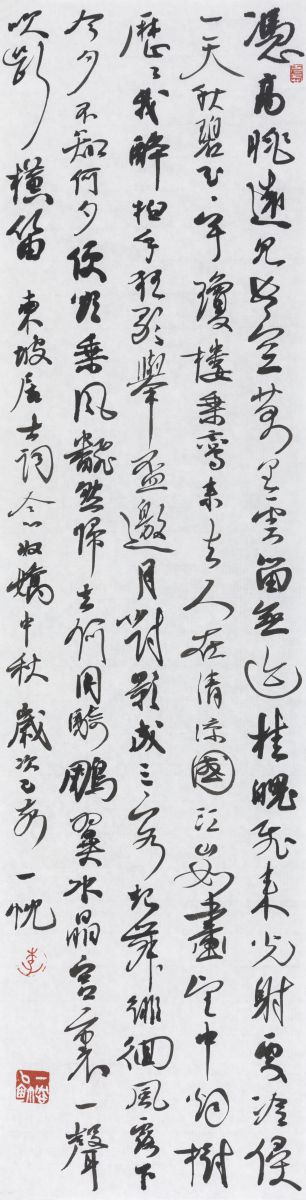 憑高眺遠見長空萬里雲留無迹桂魄飛來光射處冷侵
一天秋碧玉宇瓊樓乘鸞來去人在清涼國江山如畫望中烟樹
歷々我醉拍手狂歌舉盃邀月對影成三客起舞徘徊風露下
今夕不知何夕便欲乘風翻然歸去何用騎鵬翼水晶宮裏一聲
吹斷橫笛 東坡居士詞念奴嬌中秋 歲次己亥 一忱
李